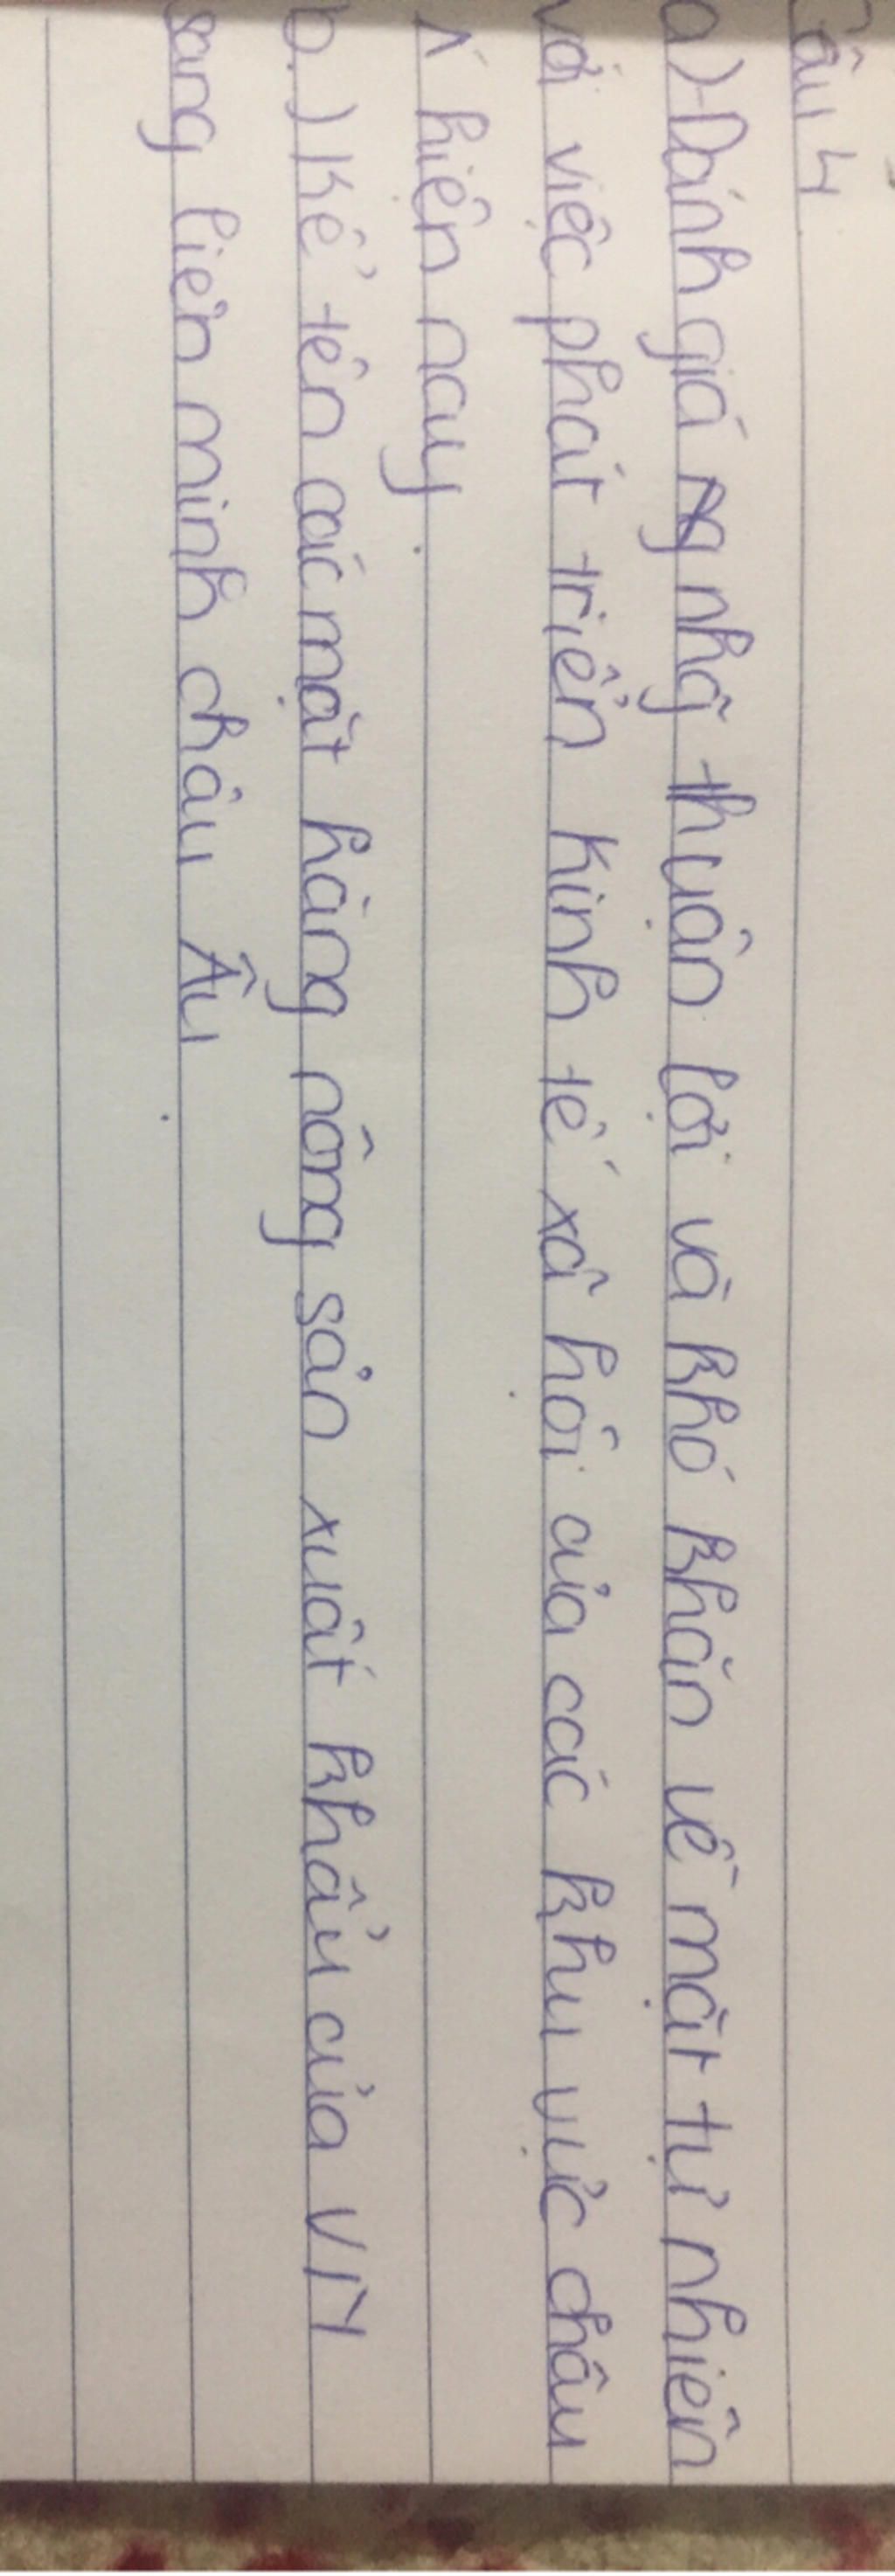 Câu 4
a) Đánh giá nhg̃ thuận lợi và khó khăn về mặt tự nhiên
với việc phát triển kinh tế xã hội của các khu vực châu
Á hiện nay.
b.) Kể tên các mặt hàng nông sản xuất khẩu của VN
sang liên minh châu Âu.